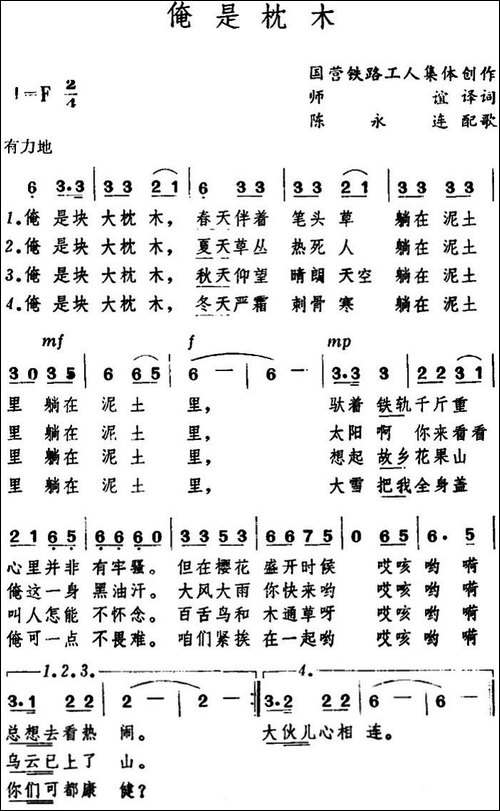 俺是枕木
国营铁路工人集体创作
1=F 2/4
师谊译词
陈永连配歌
有力地
6 3·3 | 3 3 2 1 | 6 3 3 | 3 3 2 1 | 3 3 3 3 |
1.俺 是块 大枕 木, 春天伴着 笔头 草 躺在 泥土
2.俺 是块 大枕 木, 夏天草丛 热死 人 躺在 泥土
3.俺 是块 大枕 木, 秋天仰望 晴朗 天空 躺在 泥土
4.俺 是块 大枕 木, 冬天严霜 刺骨 寒 躺在 泥土
mf f mp
3 0 3 5 | 6 6 5 | 6 - | 6 - | 3·3 3 | 2 2 3 1 |
里 躺在 泥 土 里, 驮着 铁轨千斤重
里 躺在 泥 土 里, 太阳啊 你来看看
里 躺在 泥 土 里, 想起 故乡花果山
里 躺在 泥 土 里, 大雪 把我全身盖
2 1 6 5 | 6 6 6 0 | 3 3 5 3 | 6 6 7 5 | 0 6 5 | 6· 5 |
心里并非 有牢骚。 但在樱花 盛开时侯 哎咳 哟 嗬
俺这一身 黑油汗。 大风大雨 你快来哟 哎咳 哟 嗬
叫人怎能 不怀念。 百舌鸟和 木通草呀 哎咳 哟 嗬
俺可一点 不畏难。 咱们紧挨 在一起哟 哎咳 哟 嗬
1.2.3. 4.
3·1 2 2 | 2 - | 2 - :| 3·2 2 1 | 6 - | 6 - ‖
总想去看热 闹。 大伙儿心相 连。
乌云已上了 山。
你们可都康 健?